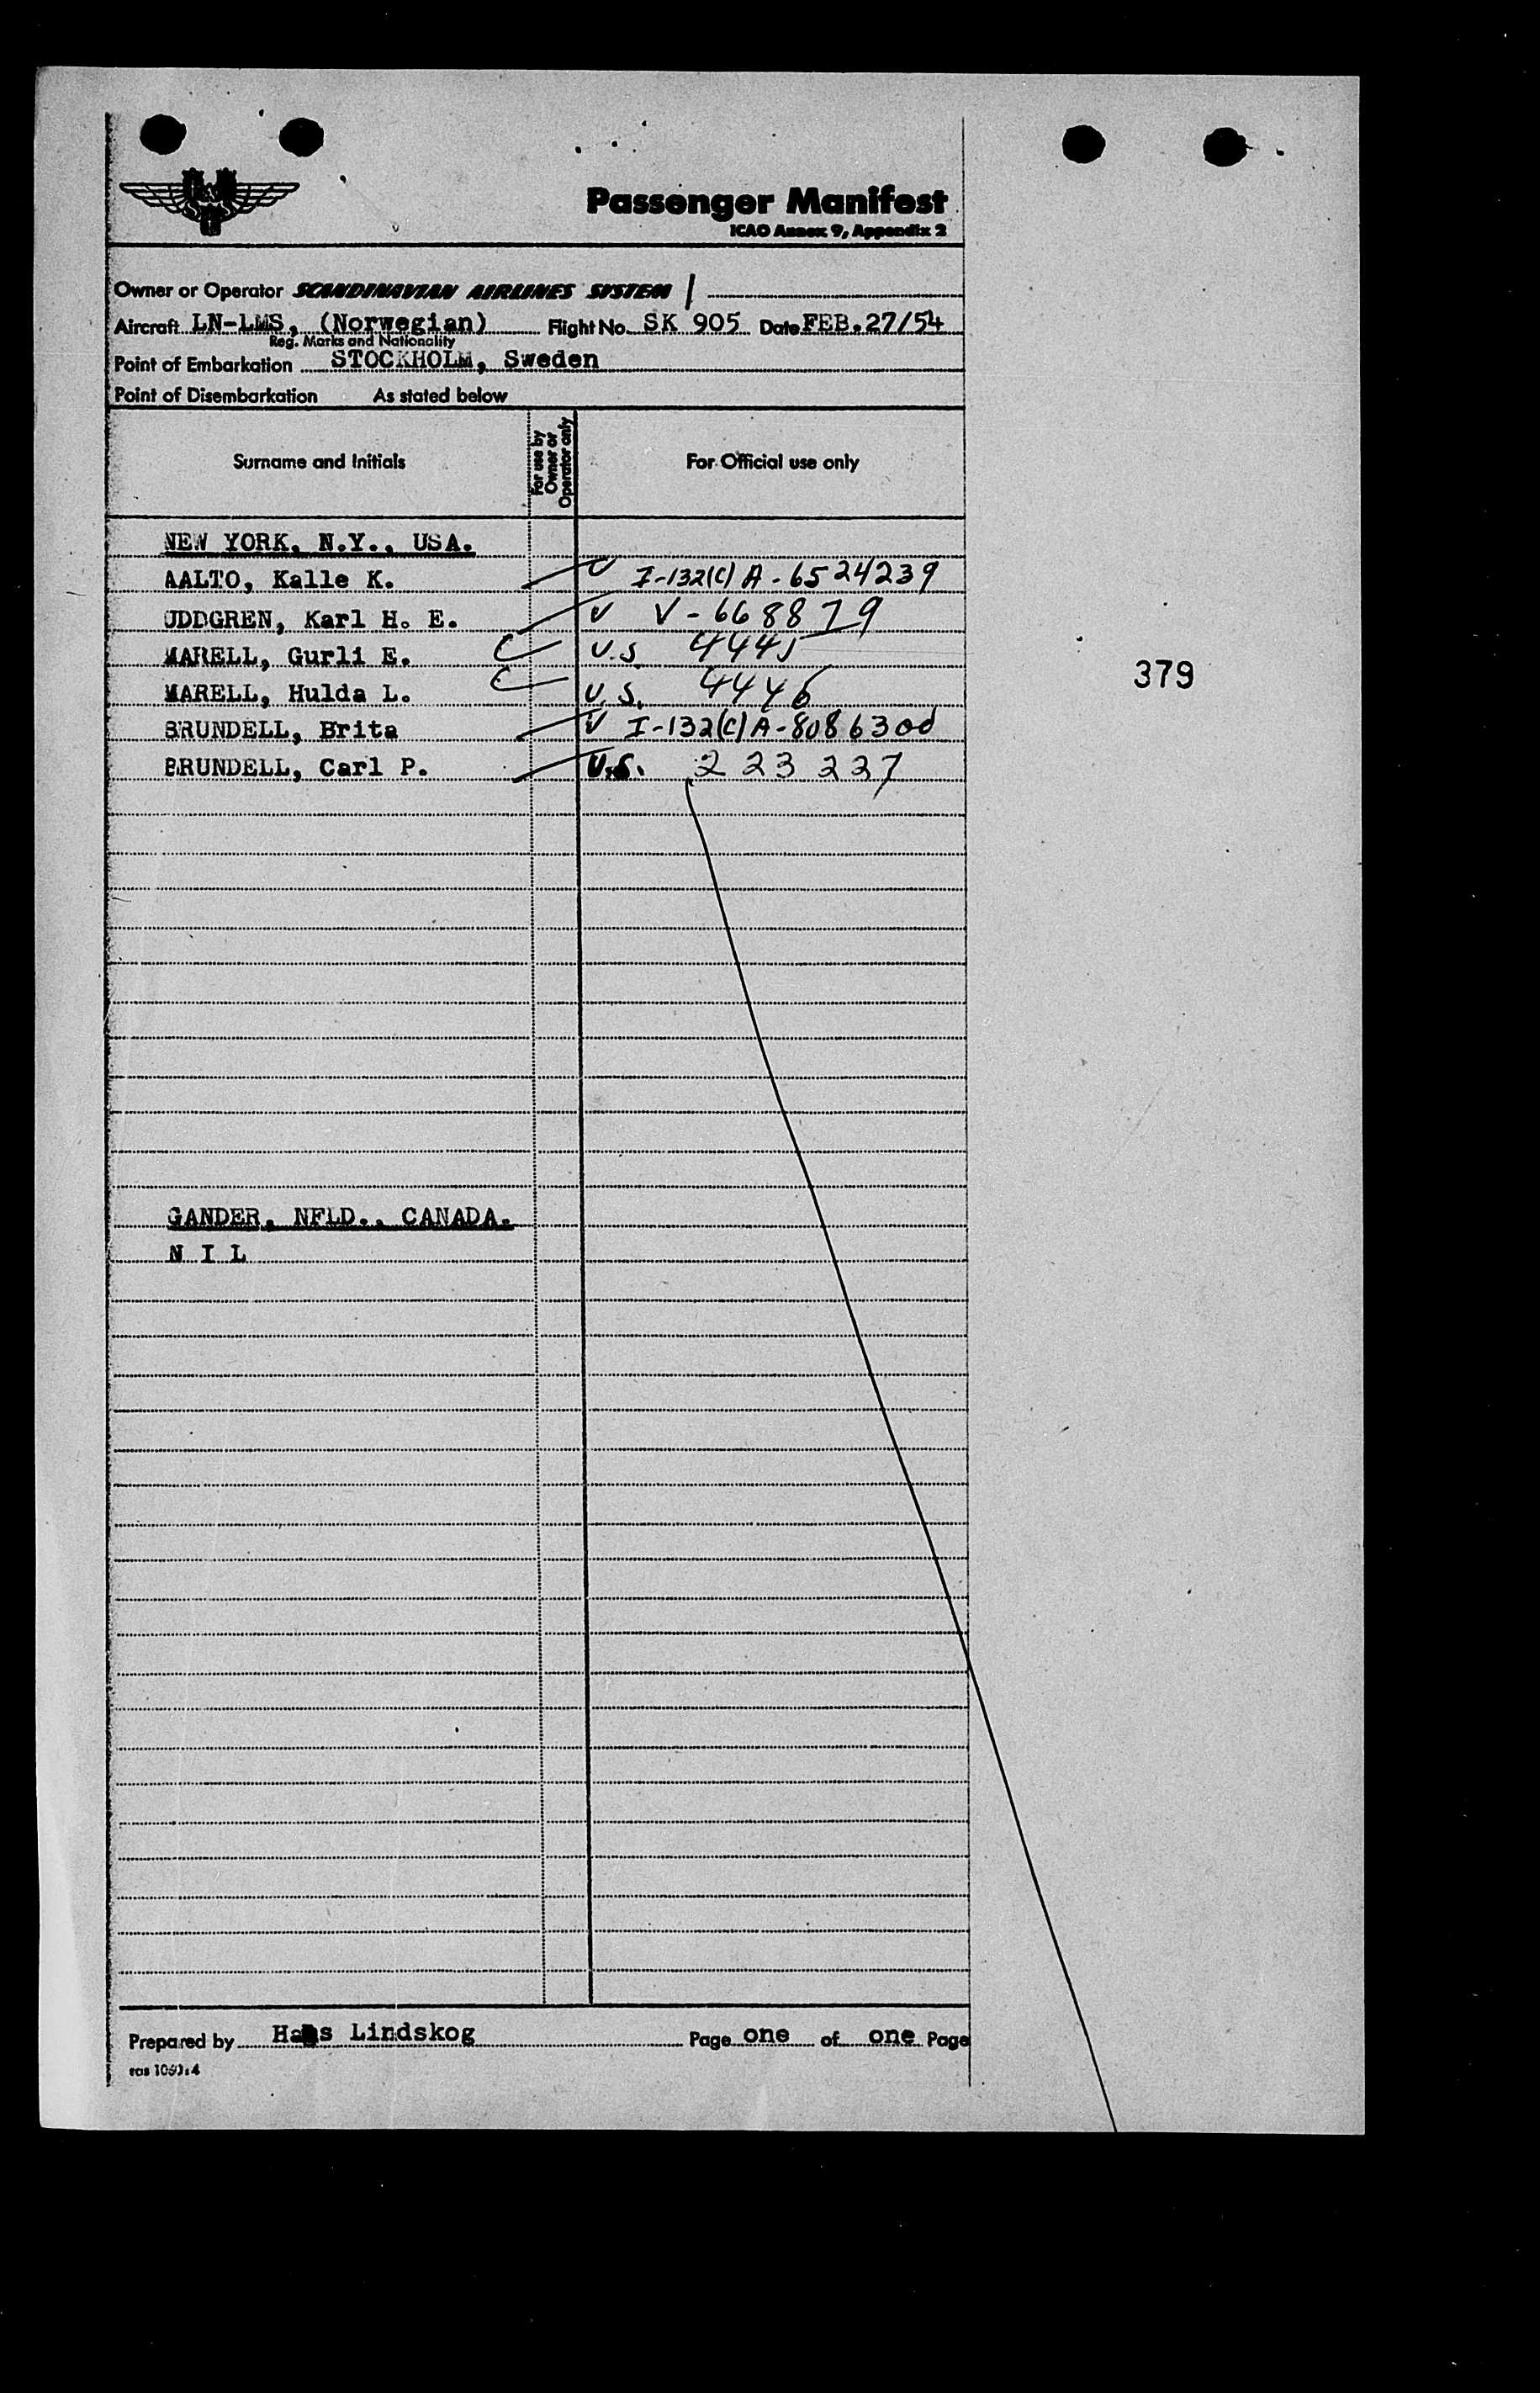 Passenger Manifest
ICAO Annex 9, Appendix 2
Owner or Operator SCANDINAVIAN AIRLINES SYSTEM
Aircraft LN-LMS, (Norwegian) Flight No. SK 905 Date FEB. 27/54
Reg. Marks and Nationality
Point of Embarkation STOCKHOLM, Sweden
Point of Disembarkation As stated below
Surname and Initials For use by Owner or Operator only For Official use only
NEW YORK, N.Y., USA.
AALTO, Kalle K. V I-132(C) A-6524239
UDDGREN, Karl H. E. V V-668879
MARELL, Gurli E. U.S 4445
MARELL, Hulda L. U.S. 4446
379
BRUNDELL, Brita V I-132(C) A-8086300
BRUNDELL, Carl P. U.S. 223227
GANDER, NFLD., CANADA.
N I L
Prepared by Hans Lindskog Page one of one Page